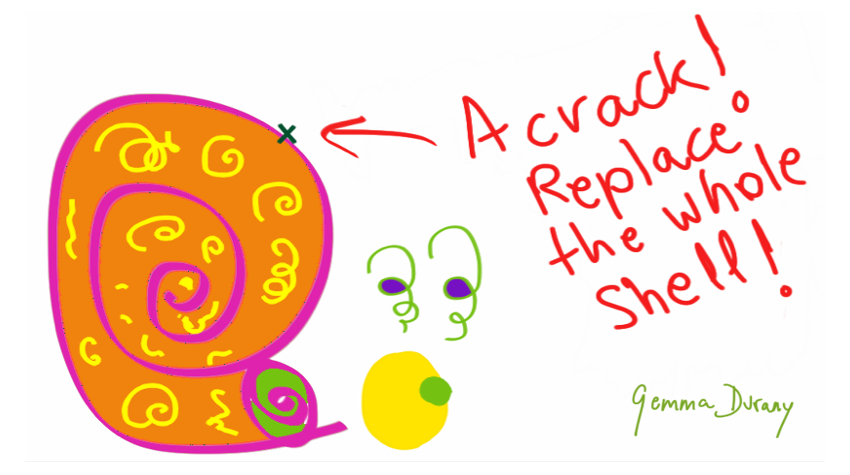 A crack!
Replace
the whole
shell!
Gemma Durany